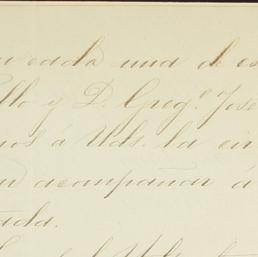 cada una de es
llo y D. Greg.º Jose
mos á Uds. la cir
acompañar á
tada.